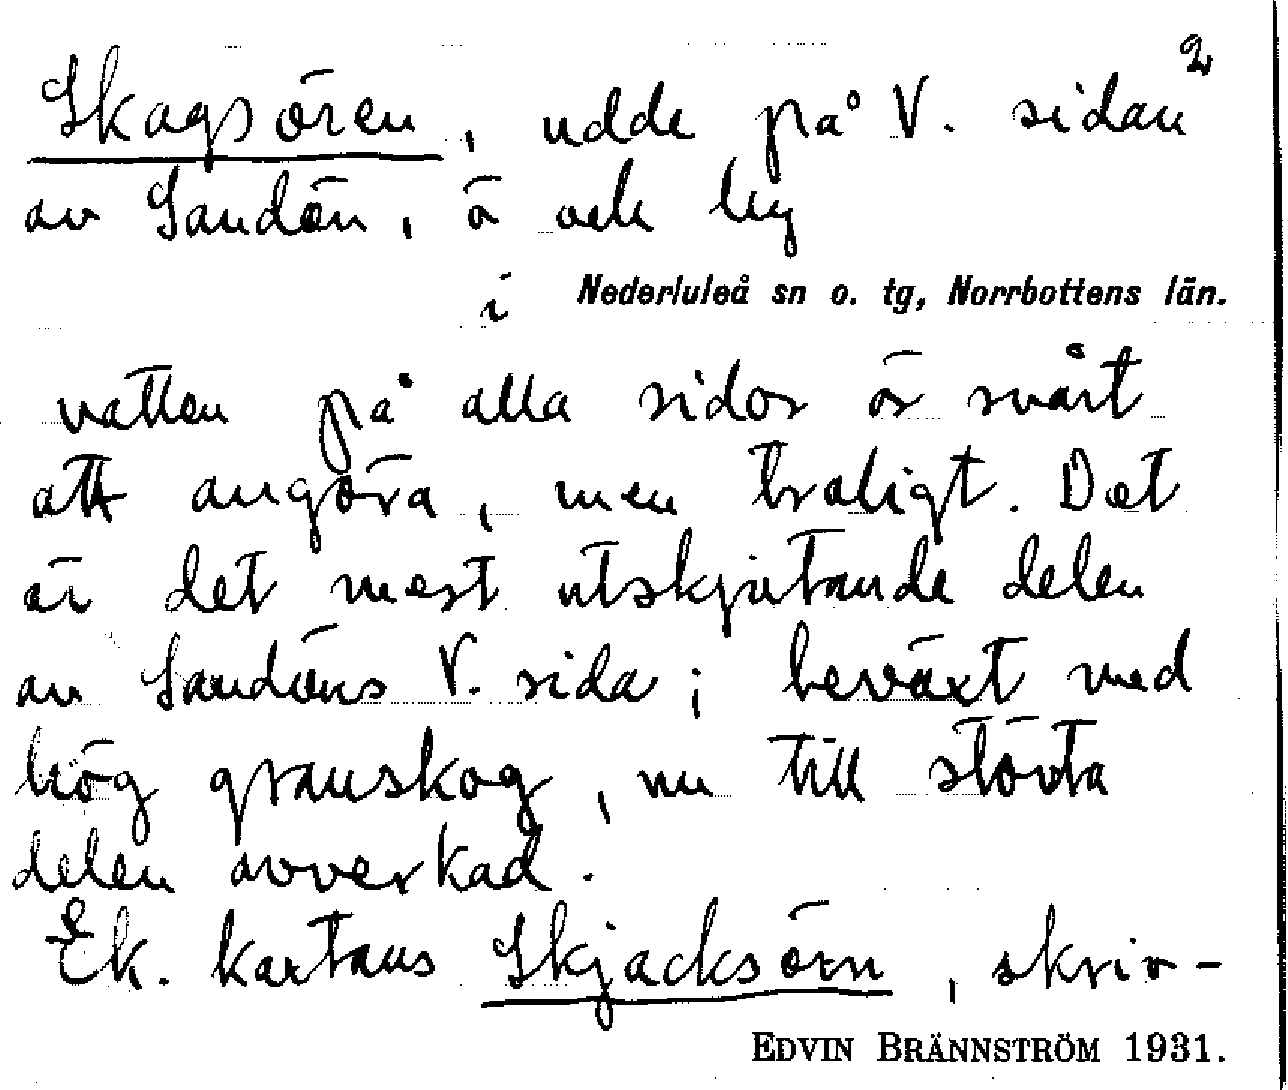 2
Skagsören, udde på V. sidan
av Sandön, ö och by
i Nederluleå sn o. tg, Norrbottens län.
vatten på alla sidor är svårt
att angöra, men traligt. Det
är det mest utskjutande delen
av Sandöns V. sida; beväxt med
hög granskog, nu till största
delen avverkad.
Ek. kartans Skjacksörn, skriv-
EDVIN BRÄNNSTRÖM 1931.